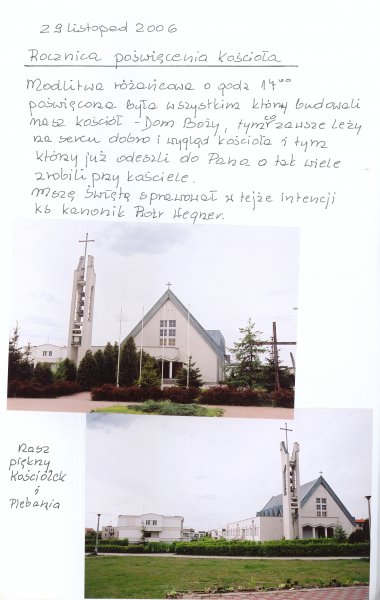 29 listopad 2006
Rocznica poświęcenia kościoła
Modlitwa różańcowa o godz 14⁰⁰
poświęcona była wszystkim którzy budowali
nasz kościół - Dom Boży, tym co zawsze leży
na sercu dobro i wygląd kościoła i tym
którzy już odeszli do Pana a tak wiele
zrobili przy kościele.
Mszę Świętą sprawował w tejże intencji
ks kanonik Piotr Wegner.
Nasz
piękny
Kościółek
i
Plebania